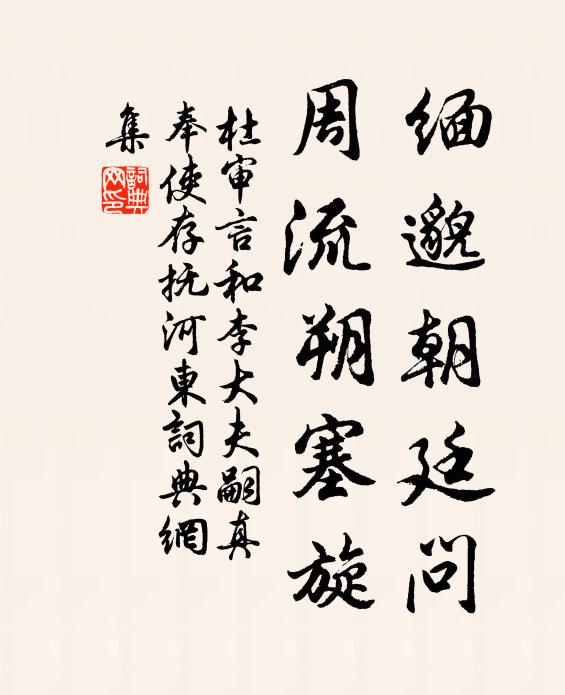 缅邈朝廷问
周流朔塞旋
杜审言和李大夫嗣真
奉使存抚河東詞典網
集
詞典
网印